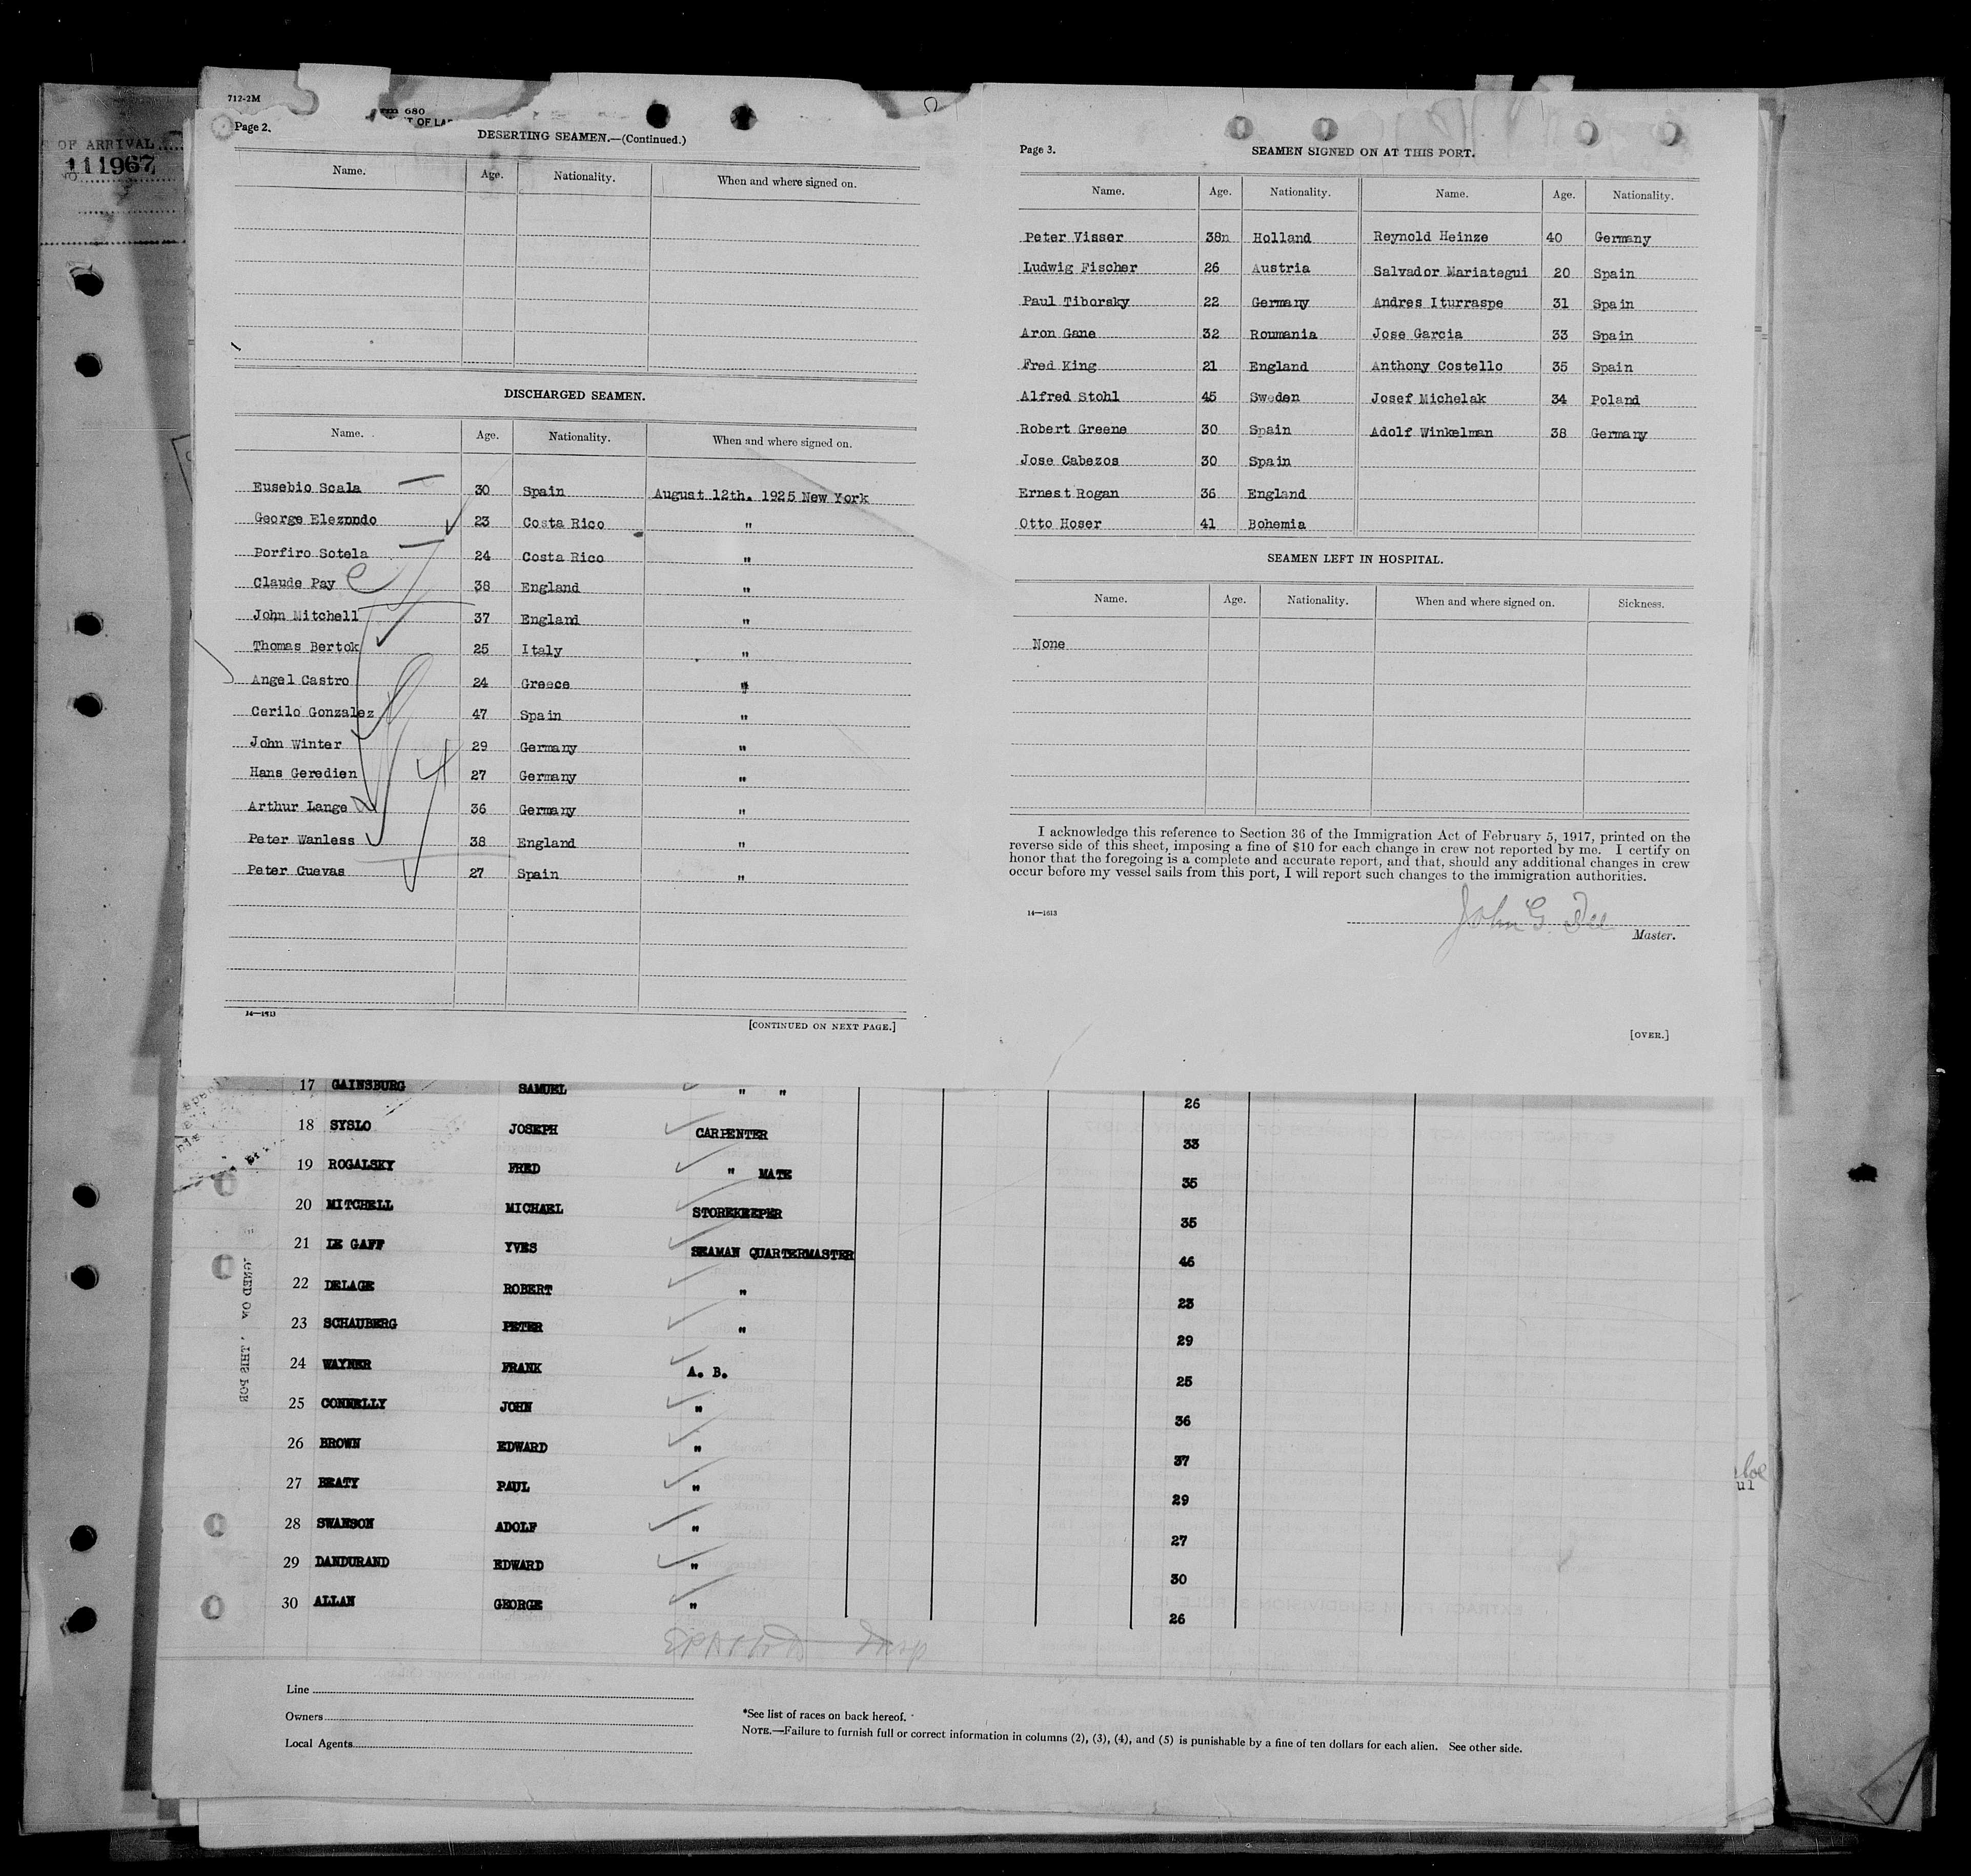 OF ARRIVAL
111967
712-2M
680
T OF LA
Page 2.
DESERTING SEAMEN.—(Continued.)
Name. Age. Nationality. When and where signed on.
DISCHARGED SEAMEN.
Name. Age. Nationality. When and where signed on.
Eusebio Scala 30 Spain August 12th. 1925 New York
George Elezondo 23 Costa Rico "
Porfiro Sotela 24 Costa Rico "
Claude Pay 38 England "
John Mitchell 37 England "
Thomas Bertok 25 Italy "
Angel Castro 24 Greece "
Cerilo Gonzalez 47 Spain "
John Winter 29 Germany "
Hans Geredien 27 Germany "
Arthur Lange 36 Germany "
Peter Wanless 38 England "
Peter Cuevas 27 Spain "
14—1613
[CONTINUED ON NEXT PAGE.]
Page 3.
SEAMEN SIGNED ON AT THIS PORT.
Name. Age. Nationality. Name. Age. Nationality.
Peter Visser 38n Holland Reynold Heinze 40 Germany
Ludwig Fischer 26 Austria Salvador Mariategui 20 Spain
Paul Tiborsky 22 Germany Andres Iturraspe 31 Spain
Aron Gane 32 Roumania Jose Garcia 33 Spain
Fred King 21 England Anthony Costello 35 Spain
Alfred Stohl 45 Sweden Josef Michelak 34 Poland
Robert Greene 30 Spain Adolf Winkelman 38 Germany
Jose Cabezos 30 Spain
Ernest Rogan 36 England
Otto Hoser 41 Bohemia
SEAMEN LEFT IN HOSPITAL.
Name. Age. Nationality. When and where signed on. Sickness.
None
I acknowledge this reference to Section 36 of the Immigration Act of February 5, 1917, printed on the
reverse side of this sheet, imposing a fine of $10 for each change in crew not reported by me. I certify on
honor that the foregoing is a complete and accurate report, and that, should any additional changes in crew
occur before my vessel sails from this port, I will report such changes to the immigration authorities.
14—1613
John G.
Master.
[OVER.]
17 GAINSBURG SAMUEL " " 26
18 SYSLO JOSEPH CARPENTER 33
19 ROGALSKY FRED " MATE 35
20 MITCHELL MICHAEL STOREKEEPER 35
21 LE GAFF YVES SEAMAN QUARTERMASTER 46
22 DELAGE ROBERT " 23
23 SCHAUBERG PETER " 29
24 WAYNER FRANK A. B. 25
25 CONNELLY JOHN " 36
26 BROWN EDWARD " 37
27 BEATY PAUL " 29
28 SWANSON ADOLF " 27
29 DANDURAND EDWARD " 30
30 ALLAN GEORGE " 26
Line
Owners
Local Agents
*See list of races on back hereof.
NOTE.—Failure to furnish full or correct information in columns (2), (3), (4), and (5) is punishable by a fine of ten dollars for each alien. See other side.